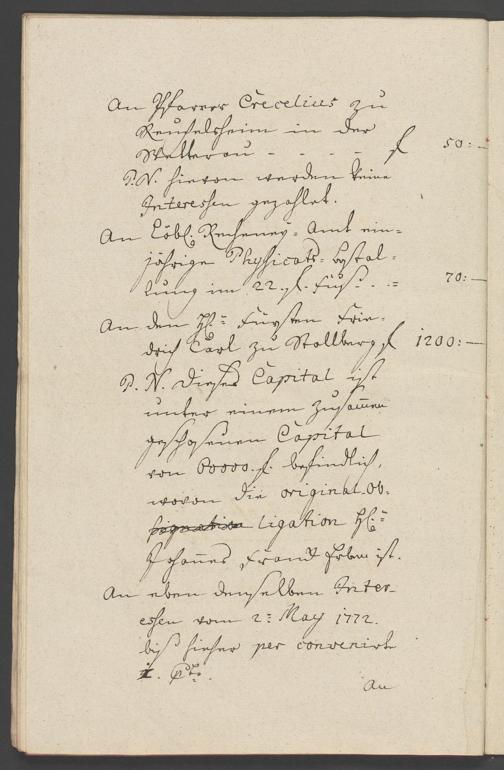 An Pfarrer Crecelius zu
Reichelsheim in der
Wetterau - - - - f 50:-
P.N. hievon werden keine
Interessen gezahlet.
An Löbl. Recheney-Amt ein-
jährige Physicats-Bestal-
lung im 22. f. Fuß. . = 70:-
An den H. Fürsten Frie-
drich Carl zu Stollberg f 1200:-
P.N. dieses Capital ist
unter einem zusammen
geschossenen Capital
von 60000. f. befindlich,
wovon die original Ob-
ligation H.
Johannes Erben ist.
An eben demselben Inter-
essen vom 2. May 1772.
biß hieher per convenirte
An